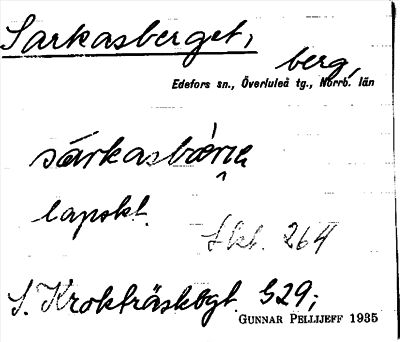 Sarkasberget,
berg,
Edefors sn., Överluleå tg., Norrb. län
lapskt.
Skt. 264
S. Krokträskbgt. S29;
GUNNAR PELLIJEFF 1935